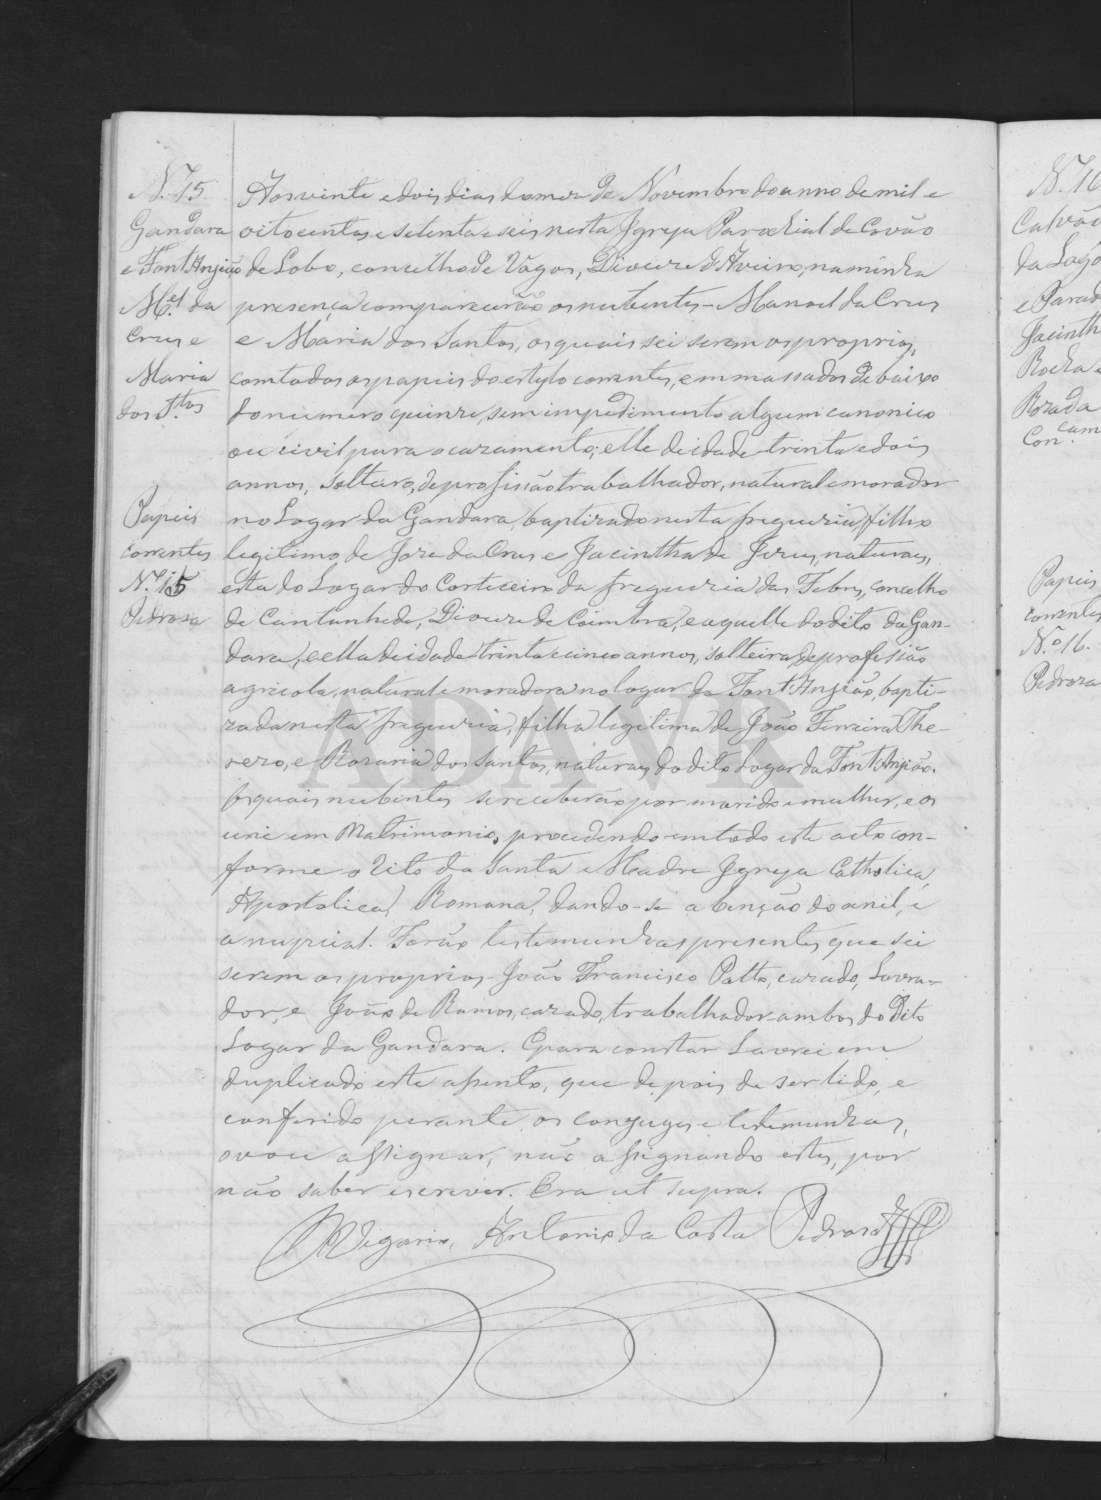 N.º 15
Gandara
e Font'Anjião
M.el da
Crus e
Maria
dos S.tos
Papeis
correntes
N.º 15
Pedrosa
Aos vinte e dois dias do mez de Novembro do anno de mil e
oito centos e setenta e seis nesta Igreja Parochial de Covão
de Lobo, concelho de Vagos, Diocese d'Aveiro, na minha
presença comparecerão os nubentes - Manoel da Crus
e Maria dos Santos, os quais sei serem os proprios,
com todos os papeis do estylo correntes, emmassados de baixo
do numero quinze, sem impedimento algum canonico
ou civil para o cazamento; elle de idade trinta e dois
annos, solteiro, de profissão trabalhador, natural e morador
no Logar da Gandara, baptizado nesta freguezia, filho
legitimo de Joze da Crus e Jacintha de Jezus, naturaes,
esta do Logar do Corticeiro da freguezia das Febres, concelho
de Cantanhede, Diocese de Coimbra, e aquelle do dito da Gan-
dara; e ella de idade trinta e cinco annos, solteira, de profissão
agricola, natural e moradora no logar da Font'Anjião, bapti-
zada nesta freguezia, filha legitima de João Ferreira The-
zero, e Rozaria dos Santos, naturaes do dito Logar da Font'Anjião.
Os quais nubentes se receberão por marido e mulher, e os
uni em Matrimonio, procedendo em todo este acto con-
forme o rito da Santa Madre Igreja Catholica,
Apostolica, Romana, dando-se a benção do anil, e
a nupcial. Forão testemunhas presentes, que sei
serem os proprios João Francisco Patto, cazado, Lavra-
dor, e João de Ramos, cazado, trabalhador ambos do Dito
Logar da Gandara. E para constar Lavrei em
duplicado este assento, que depois de ser lido, e
conferido perante os conjuges e testemunhas,
o vou assignar, não assignando estes, por
não saber escrever. Era ut supra.
O Vigario, Antonio da Costa Pedrosa
N.º 16
Calvão
da Lagô
e Parad
Jacinth
Rocha e
Rozada
Con cam
Papeis
correntes
N.º 16.
Pedroza
ADAVR